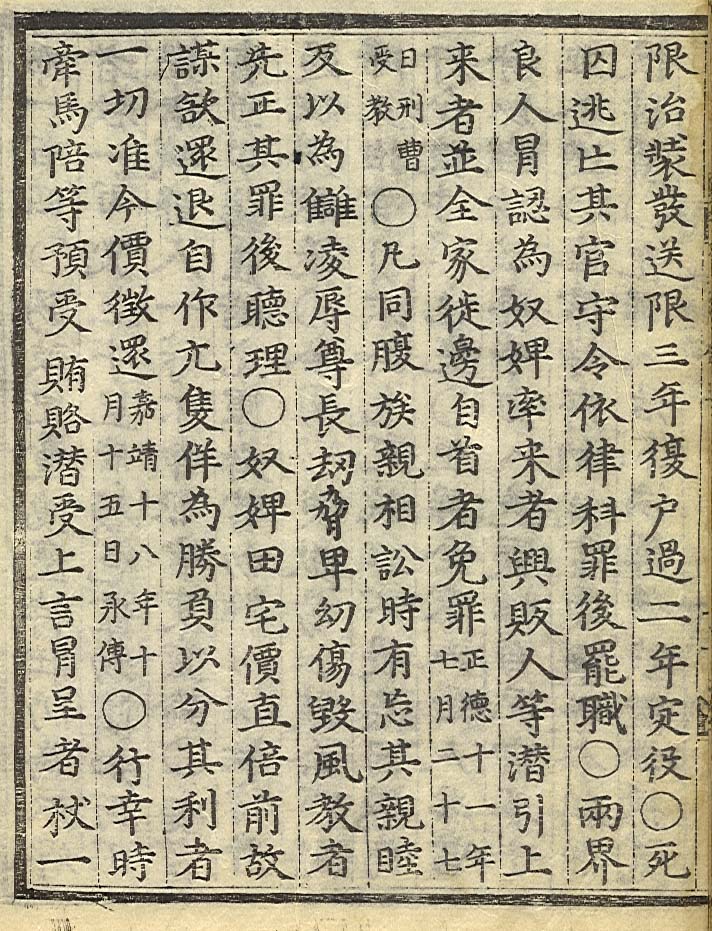 限治裝發送限三年復戶過二年定役○死
囚逃亡其官守令依律科罪後罷職○兩界
良人冒認為奴婢率来者興販人等潜引上
来者並全家徙邊自首者免罪正德十一年七月二十七
日刑曹受教○凡同腹族親相訟時有忘其親睦
反以為讎凌辱尊長刧脅卑幼傷毀風教者
先正其罪後聽理○奴婢田宅價直倍前故
謀欲還退自作元隻佯為勝負以分其利者
一切准今價徵還嘉靖十八年十月十五日承傳○行幸時
牽馬陪等預受賄賂潜受上言冒呈者杖一